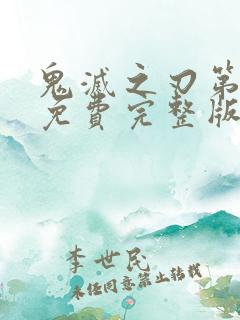 鬼滅之刃第
免費完整版
李世民
未經同意禁止轉載